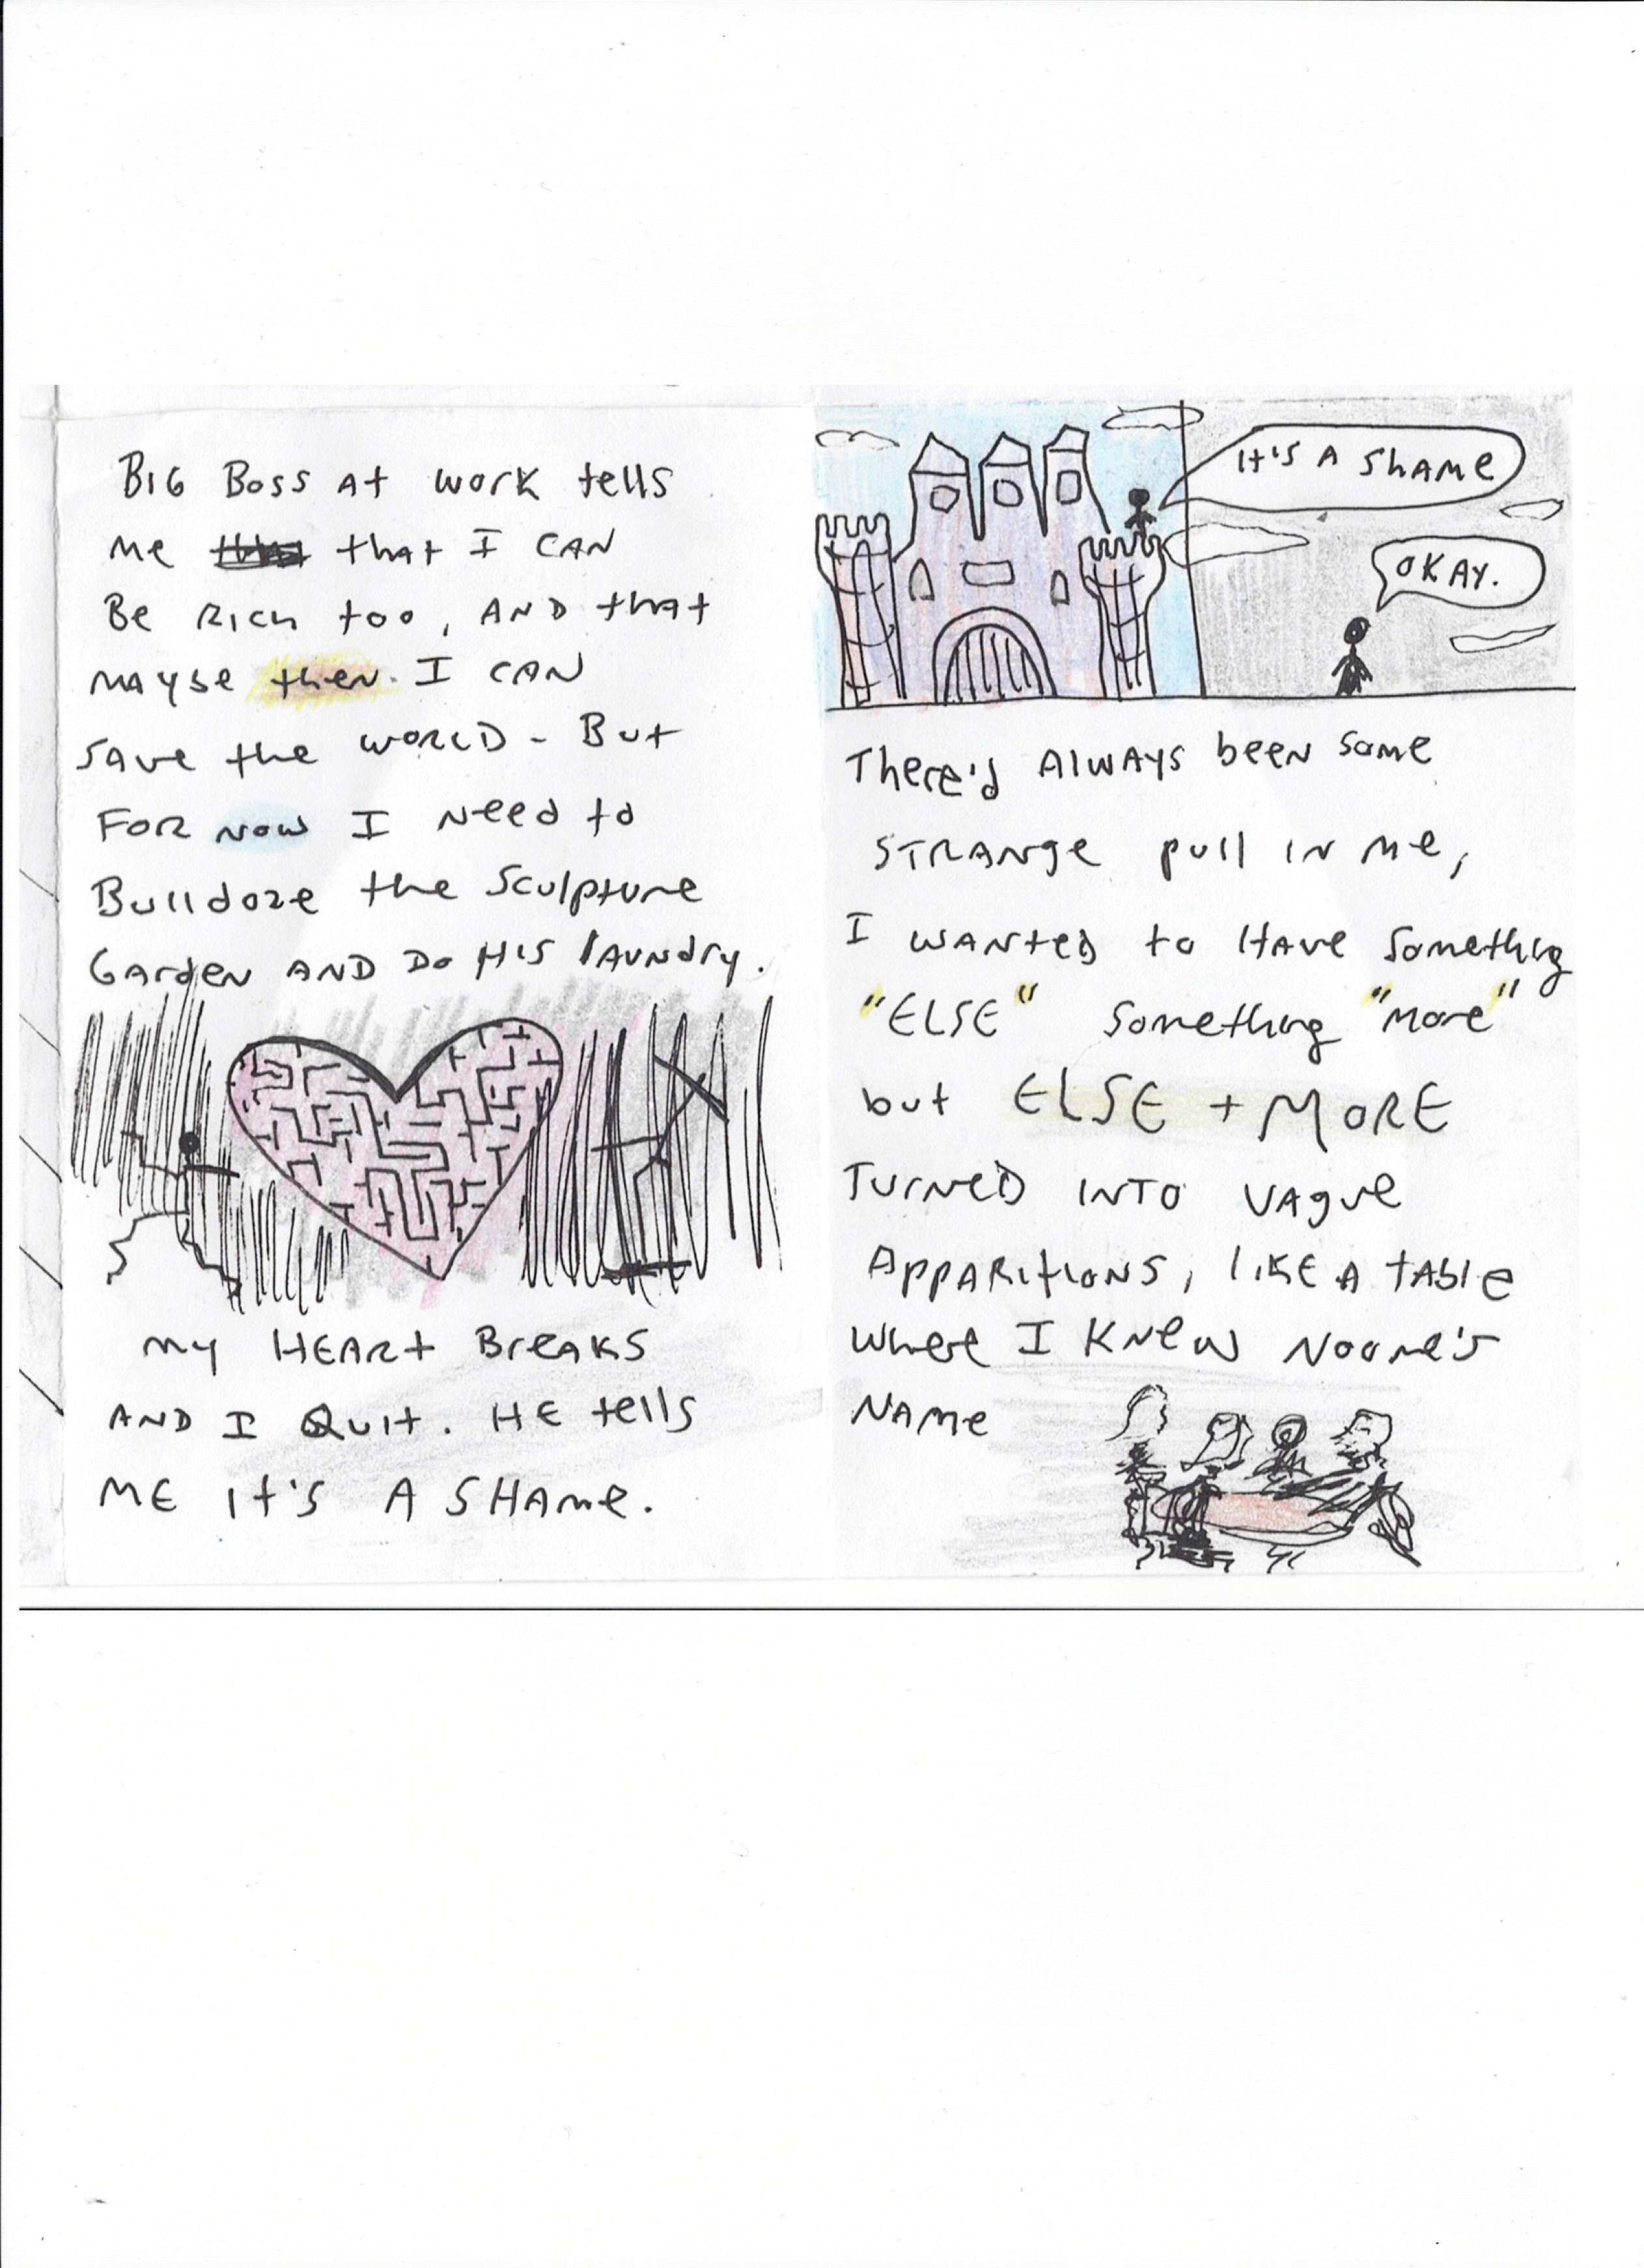 BIG BOSS At work tells
Me that I CAN
Be RICH too, AND that
MAYBE then. I CAN
SAVE the WORLD - But
FOR NOW I NEED to
Bulldoze the Sculpture
GARDEN AND Do HIS lAUNdry.
MY HEARt BreAKS
AND I QUIt. HE tells
ME It'S A SHAMe.
It'S A SHAMe
OKAY.
There'd AlWAYS beeN some
STRANge pull IN Me,
I WANteD to HAVE Something
"ELSE" Something "More"
but ELSE + MORE
TURNeD INTO VAgue
APPARItIONS, lIKE A tABlE
WheRe I KNeW Noone's
NAMe